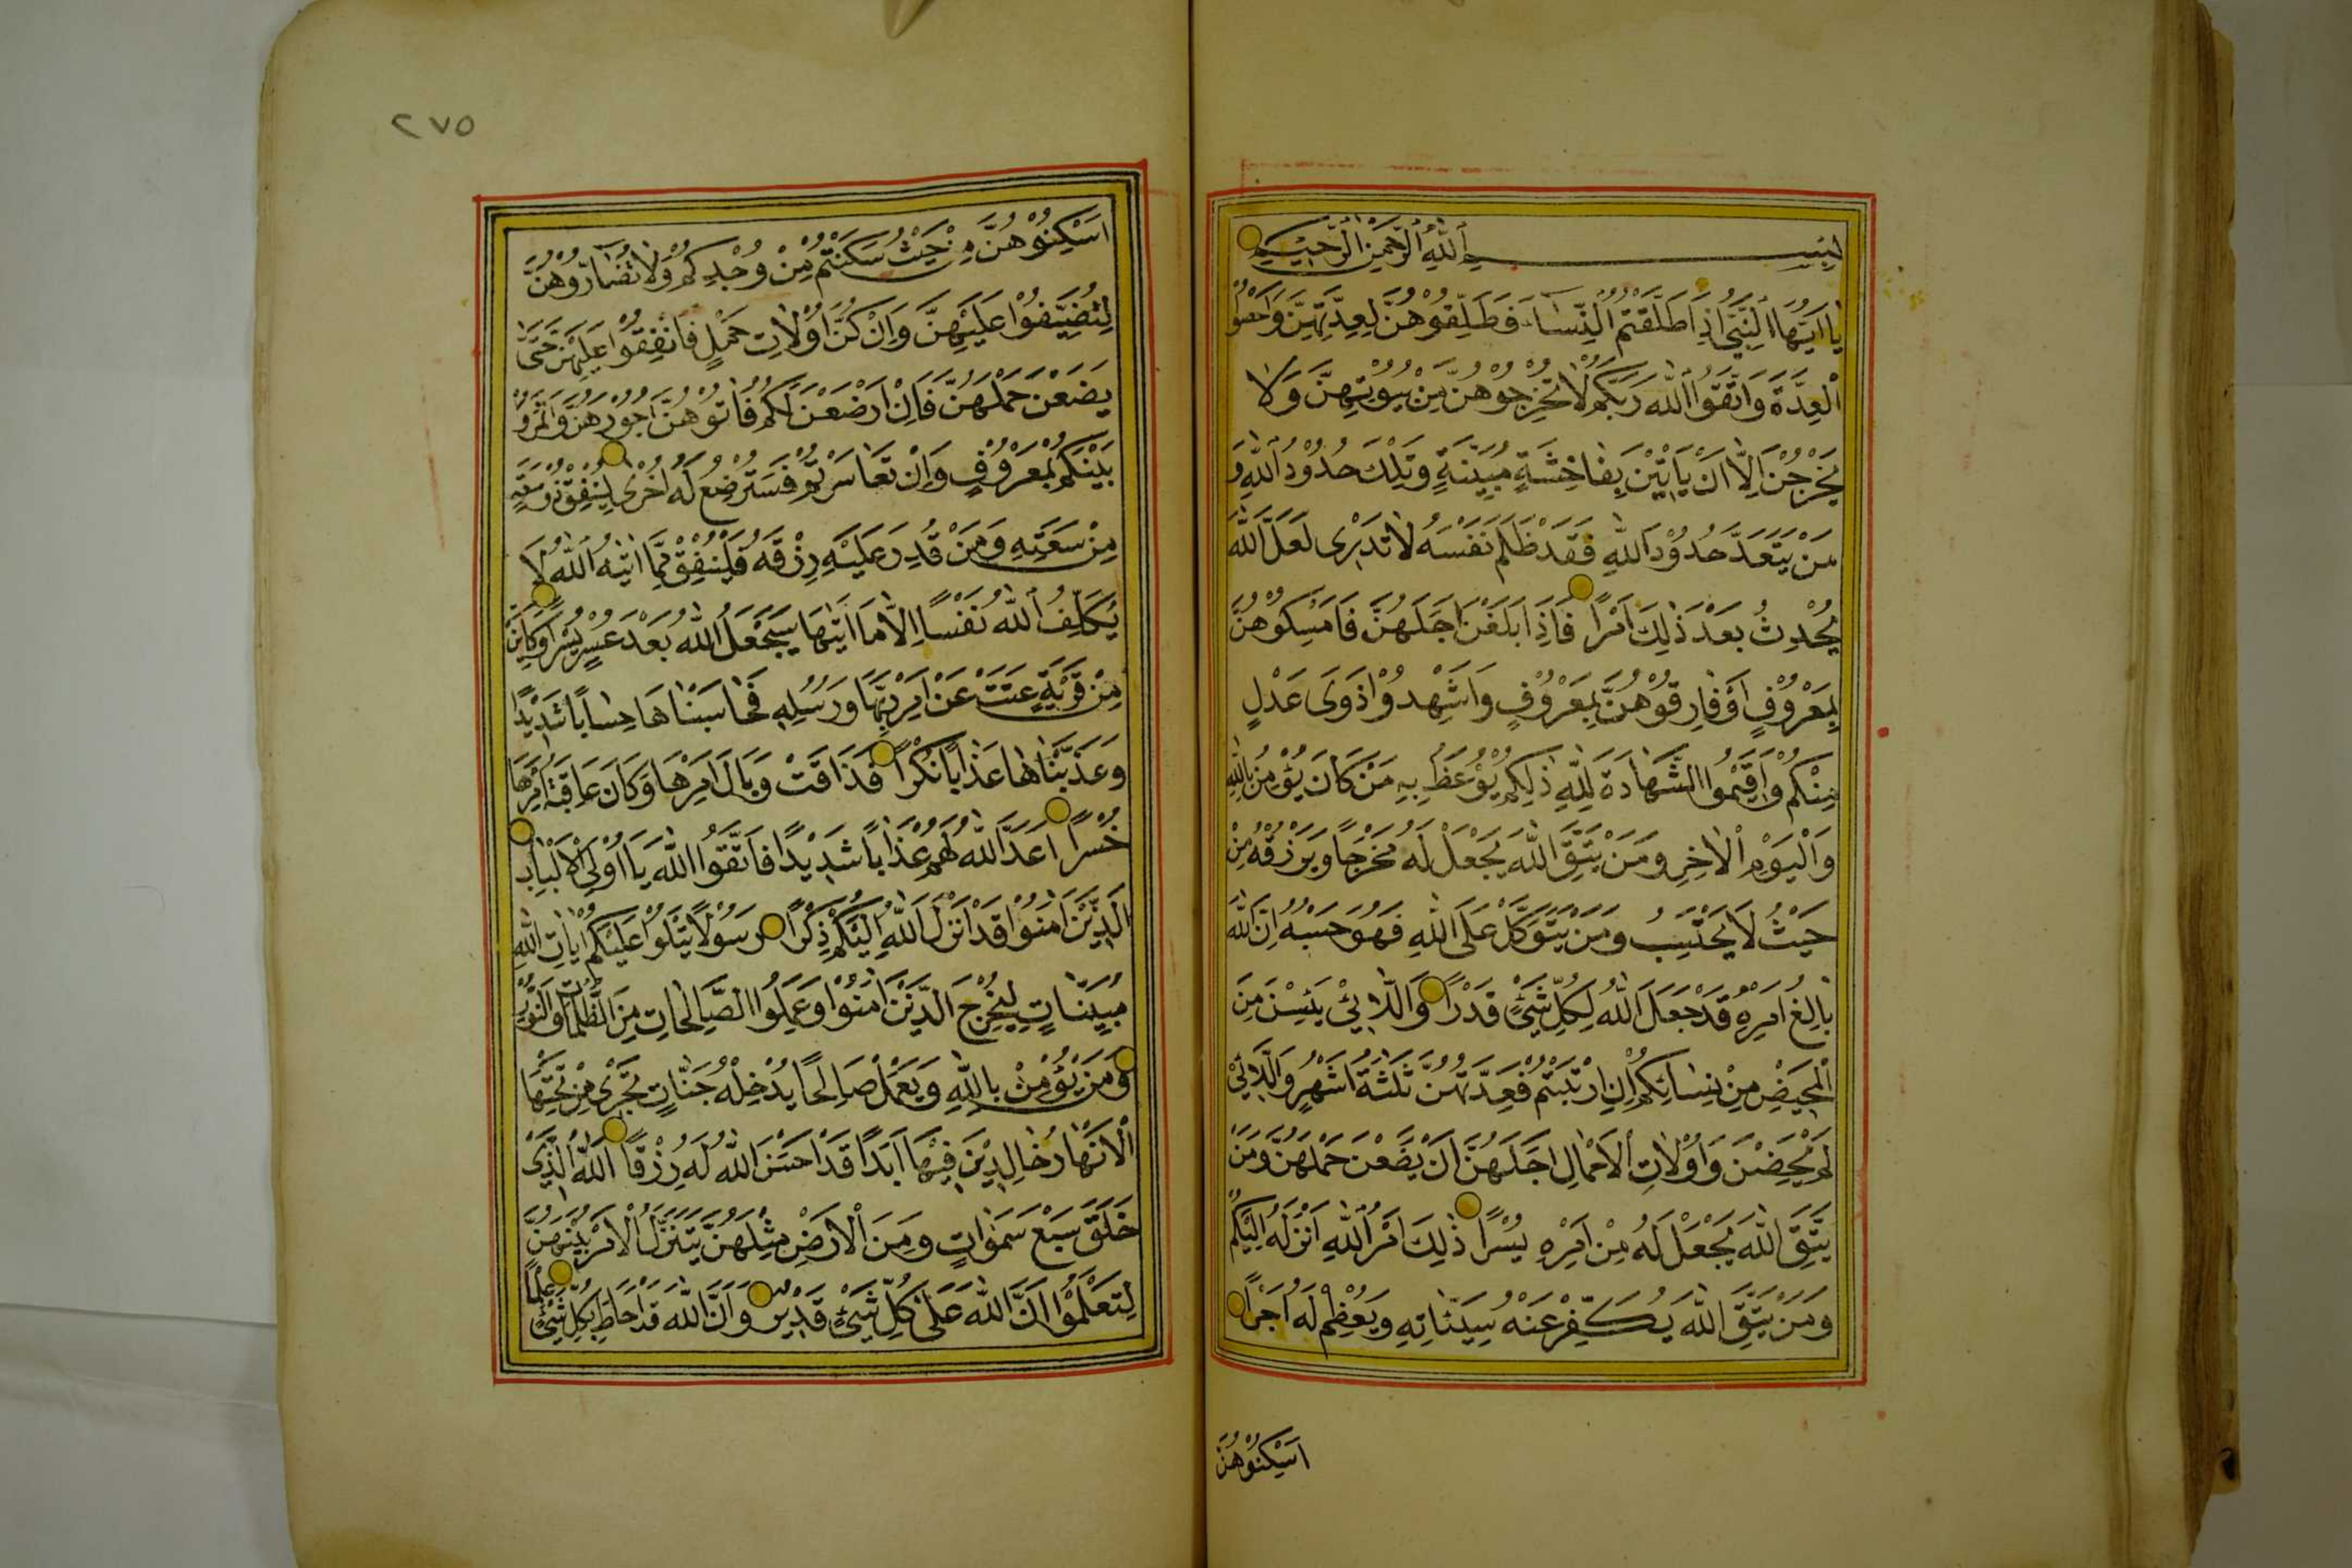 بِسْمِ اللّٰهِ الرَّحْمٰنِ الرَّحِيمِ
يَا اَيُّهَا النَّبِيُّ اِذَا طَلَّقْتُمُ النِّسَاءَ فَطَلِّقُوهُنَّ لِعِدَّتِهِنَّ وَاَحْصُوا
الْعِدَّةَ وَاتَّقُوا اللّٰهَ رَبَّكُمْ لَا تُخْرِجُوهُنَّ مِنْ بُيُوتِهِنَّ وَلَا
يَخْرُجْنَ اِلَّا اَنْ يَأْتِيْنَ بِفَاحِشَةٍ مُبَيِّنَةٍ وَتِلْكَ حُدُودُ اللّٰهِ وَ
مَنْ يَتَعَدَّ حُدُودَ اللّٰهِ فَقَدْ ظَلَمَ نَفْسَهُ لَا تَدْرِى لَعَلَّ اللّٰهَ
يُحْدِثُ بَعْدَ ذٰلِكَ اَمْرًا فَاِذَا بَلَغْنَ اَجَلَهُنَّ فَاَمْسِكُوهُنَّ
بِمَعْرُوفٍ اَوْ فَارِقُوهُنَّ بِمَعْرُوفٍ وَاَشْهِدُوا ذَوَىْ عَدْلٍ
مِنْكُمْ وَاَقِيمُوا الشَّهَادَةَ لِلّٰهِ ذٰلِكُمْ يُوعَظُ بِهِ مَنْ كَانَ يُؤْمِنُ بِاللّٰهِ
وَالْيَوْمِ الْاٰخِرِ وَمَنْ يَتَّقِ اللّٰهَ يَجْعَلْ لَهُ مَخْرَجًا وَيَرْزُقْهُ مِنْ
حَيْثُ لَا يَحْتَسِبُ وَمَنْ يَتَوَكَّلْ عَلَى اللّٰهِ فَهُوَ حَسْبُهُ اِنَّ اللّٰهَ
بَالِغُ اَمْرِهِ قَدْ جَعَلَ اللّٰهُ لِكُلِّ شَيْءٍ قَدْرًا وَاللَّائِي يَئِسْنَ مِنَ
الْمَحِيضِ مِنْ نِسَائِكُمْ اِنِ ارْتَبْتُمْ فَعِدَّتُهُنَّ ثَلٰثَةُ اَشْهُرٍ وَاللَّائِي
لَمْ يَحِضْنَ وَاُولَاتُ الْاَحْمَالِ اَجَلُهُنَّ اَنْ يَضَعْنَ حَمْلَهُنَّ وَمَنْ
يَتَّقِ اللّٰهَ يَجْعَلْ لَهُ مِنْ اَمْرِهِ يُسْرًا ذٰلِكَ اَمْرُ اللّٰهِ اَنْزَلَهُ اِلَيْكُمْ
وَمَنْ يَتَّقِ اللّٰهَ يُكَفِّرْ عَنْهُ سَيِّئَاتِهِ وَيُعْظِمْ لَهُ اَجْرًا
اَسْكِنُوهُنَّ
٢٧٥
اَسْكِنُوهُنَّ مِنْ حَيْثُ سَكَنْتُمْ مِنْ وُجْدِكُمْ وَلَا تُضَارُّوهُنَّ
لِتُضَيِّقُوا عَلَيْهِنَّ وَاِنْ كُنَّ اُولَاتِ حَمْلٍ فَاَنْفِقُوا عَلَيْهِنَّ حَتّٰى
يَضَعْنَ حَمْلَهُنَّ فَاِنْ اَرْضَعْنَ لَكُمْ فَاٰتُوهُنَّ اُجُورَهُنَّ وَأْتَمِرُوا
بَيْنَكُمْ بِمَعْرُوفٍ وَاِنْ تَعَاسَرْتُمْ فَسَتُرْضِعُ لَهُ اُخْرٰى لِيُنْفِقْ ذُو سَعَةٍ
مِنْ سَعَتِهِ وَمَنْ قُدِرَ عَلَيْهِ رِزْقُهُ فَلْيُنْفِقْ مِمَّا اٰتٰيهُ اللّٰهُ لَا
يُكَلِّفُ اللّٰهُ نَفْسًا اِلَّا مَا اٰتٰيهَا سَيَجْعَلُ اللّٰهُ بَعْدَ عُسْرٍ يُسْرًا وَكَاَيِّنْ
مِنْ قَرْيَةٍ عَتَتْ عَنْ اَمْرِ رَبِّهَا وَرُسُلِهِ فَحَاسَبْنَاهَا حِسَابًا شَدِيدًا
وَعَذَّبْنَاهَا عَذَابًا نُكْرًا فَذَاقَتْ وَبَالَ اَمْرِهَا وَكَانَ عَاقِبَةُ اَمْرِهَا
خُسْرًا اَعَدَّ اللّٰهُ لَهُمْ عَذَابًا شَدِيدًا فَاتَّقُوا اللّٰهَ يَا اُولِى الْاَلْبَابِ
الَّذِينَ اٰمَنُوا قَدْ اَنْزَلَ اللّٰهُ اِلَيْكُمْ ذِكْرًا رَسُولًا يَتْلُوا عَلَيْكُمْ اٰيَاتِ اللّٰهِ
مُبَيِّنَاتٍ لِيُخْرِجَ الَّذِينَ اٰمَنُوا وَعَمِلُوا الصَّالِحَاتِ مِنَ الظُّلُمَاتِ اِلَى النُّورِ
وَمَنْ يُؤْمِنْ بِاللّٰهِ وَيَعْمَلْ صَالِحًا يُدْخِلْهُ جَنَّاتٍ تَجْرِى مِنْ تَحْتِهَا
الْاَنْهَارُ خَالِدِينَ فِيهَا اَبَدًا قَدْ اَحْسَنَ اللّٰهُ لَهُ رِزْقًا اَللّٰهُ الَّذِى
خَلَقَ سَبْعَ سَمٰوَاتٍ وَمِنَ الْاَرْضِ مِثْلَهُنَّ يَتَنَزَّلُ الْاَمْرُ بَيْنَهُنَّ
لِتَعْلَمُوا اَنَّ اللّٰهَ عَلٰى كُلِّ شَيْءٍ قَدِيرٌ وَاَنَّ اللّٰهَ قَدْ اَحَاطَ بِكُلِّ شَيْءٍ عِلْمًا